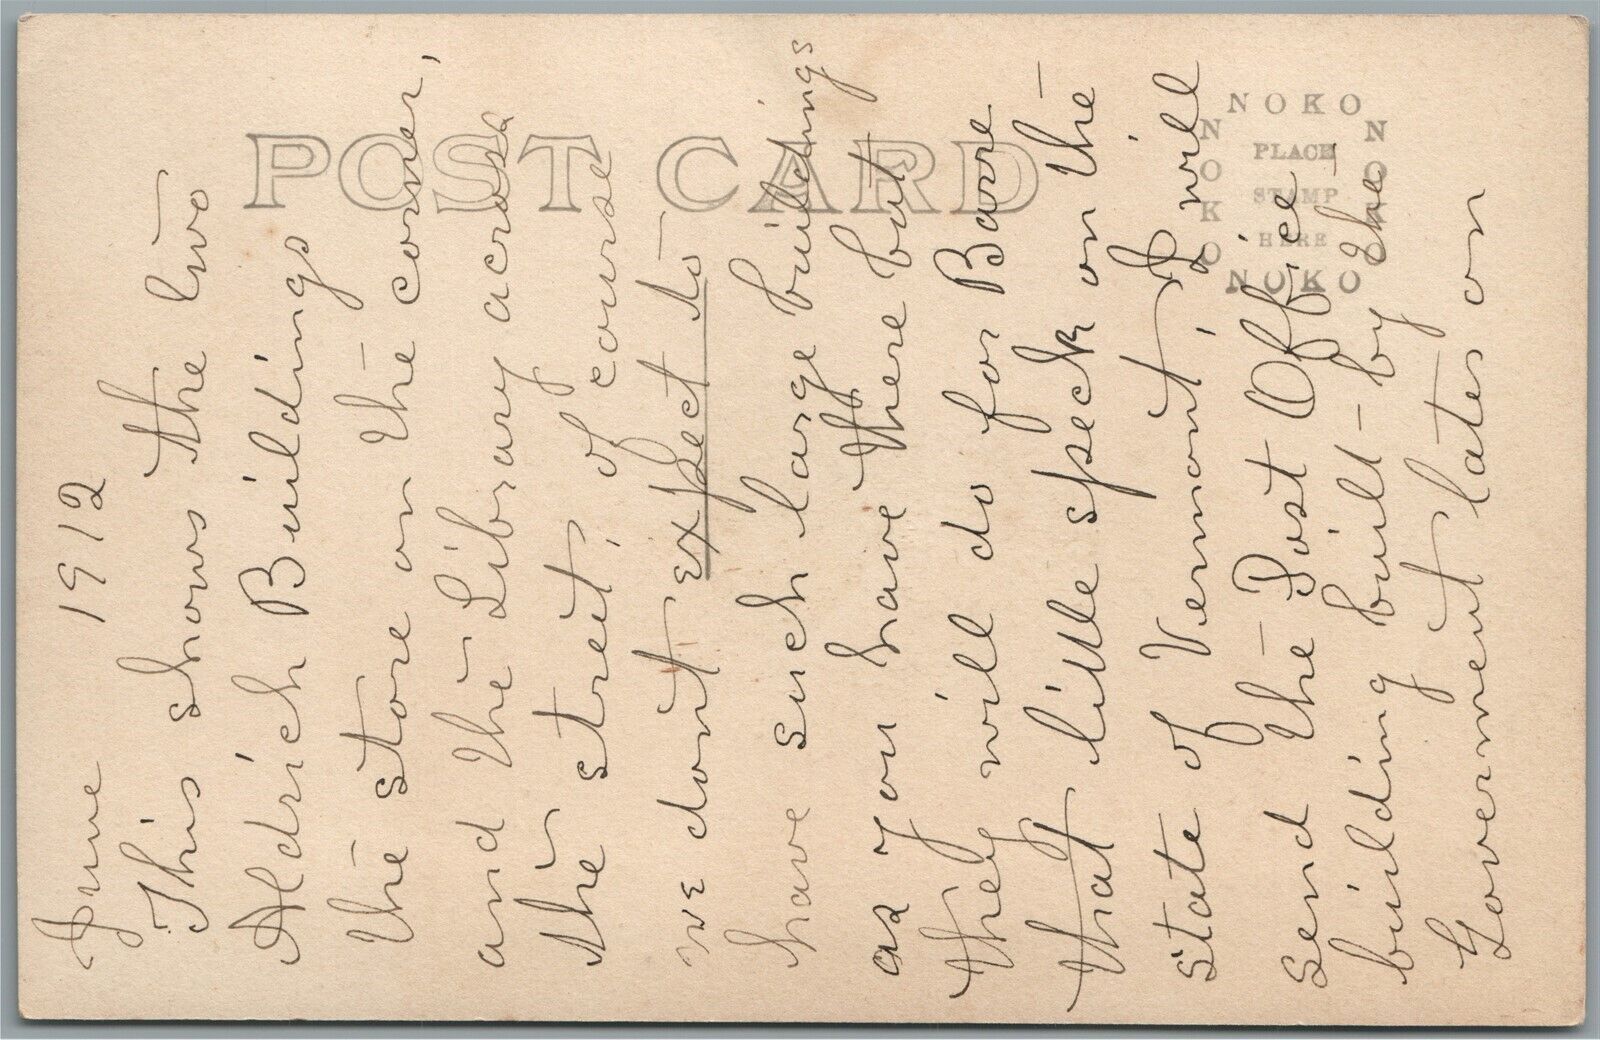 POST CARD
NOKO
NOKO
PLACE
STAMP
HERE
NOKO
NOKO
June 1912
This shows the two
Aldrich Buildings
the store on the corner,
and the Library across
the street, of course
we dont expect to
have such large buildings
as you have there but
they will do for Barre
that little speck on the
State of Vermont, I will
send the Post Office
building built - by the
Government later on